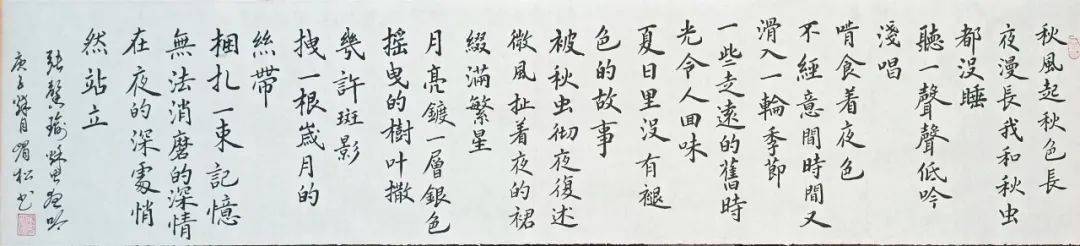 秋風起秋色長
夜漫長我和秋虫
都没睡
聽一聲聲低吟
淺唱
啃食着夜色
不經意間時間又
滑入一輪季節
一些走遠的舊時
光令人回味
夏日里没有褪
色的故事
被秋虫彻夜復述
微风扯着夜的裙
綴滿繁星
月亮鍍一層銀色
摇曳的樹叶撒
幾許斑影
拽一根歲月的
絲帶
捆扎一束記憶
無法消磨的深情
在夜的深處悄
然站立
庚子 月 松书